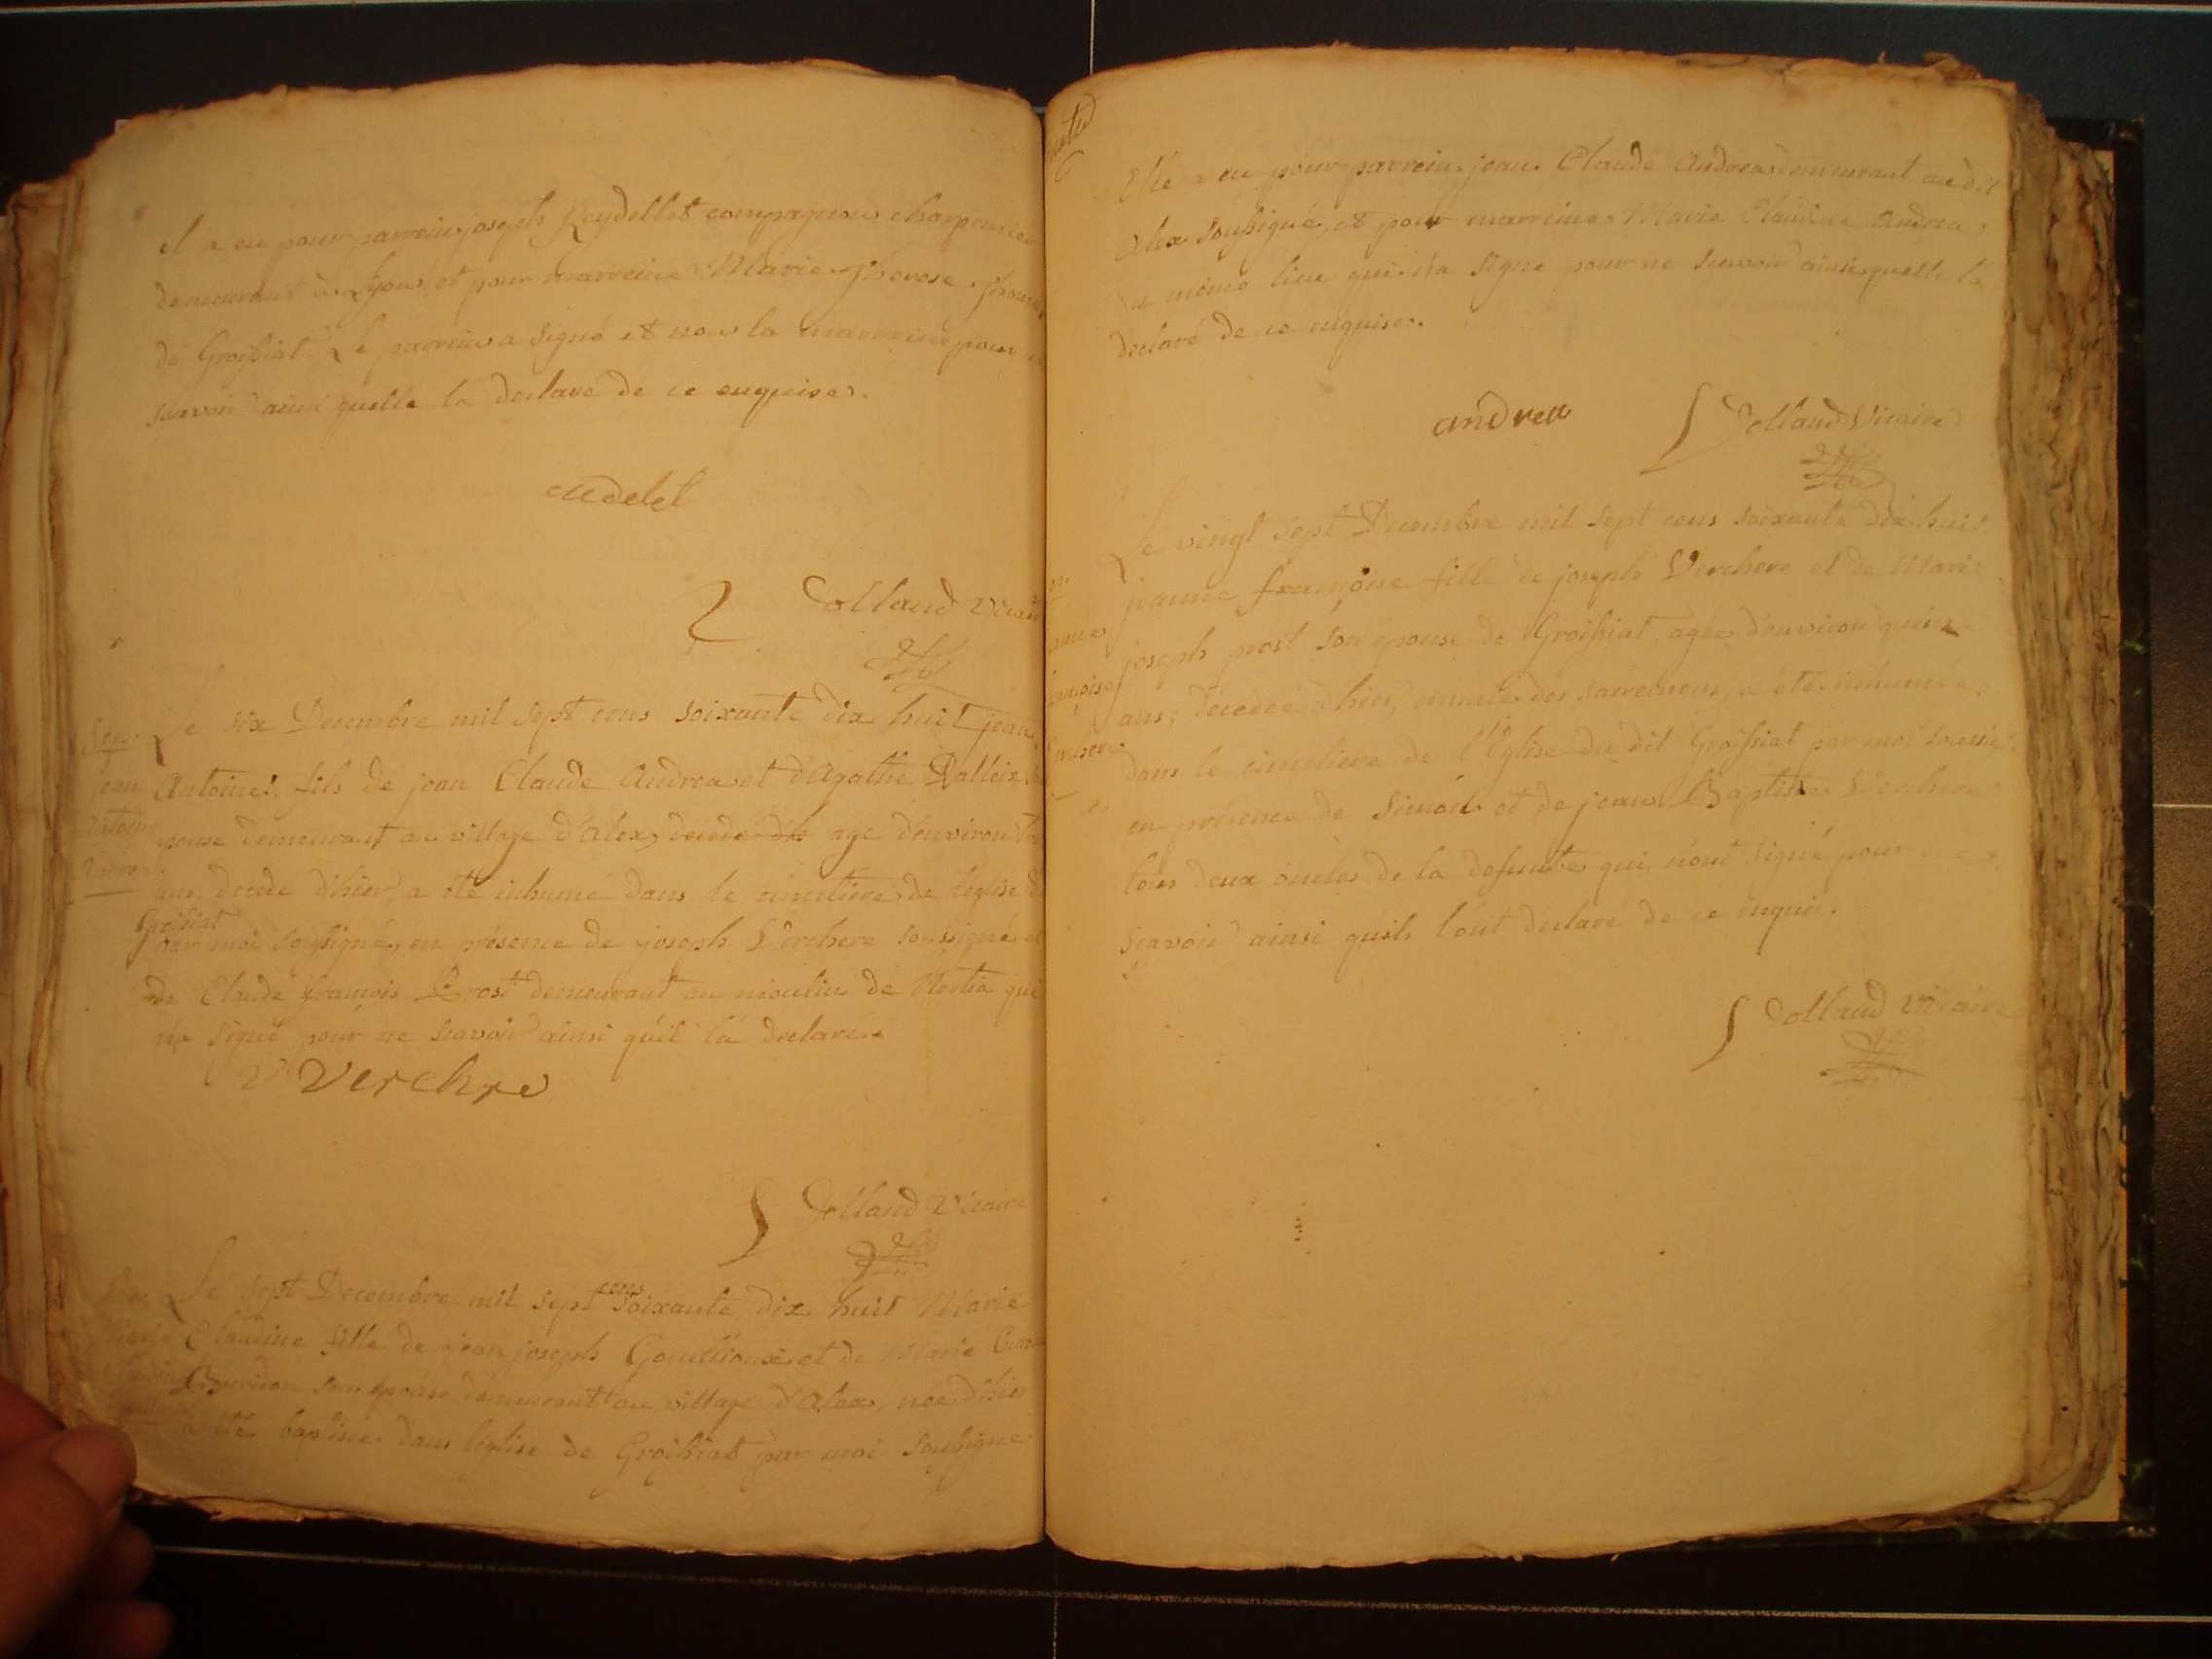 il a eu pour parrein joseph Reydellet compagnon charpentier
demeurant à Lyon, et pour marreine Marie Therese
de Groissiat. Le parrein a signé et non la marreine pour
scavoir ainsi quelle la declaré de ce enquise.
Colland Vicaire
Sep.
jean
Antoine
Andrea
Le six Decembre mil sept cens soixante dix huit jean
Antoine fils de jean Claude Andrea et d'Agathe
epouse demeurant au village d'Alex, age d'environ
ans, decede d'hier, a été inhumé dans le cimetiere de l'eglise de
Groissiat
par moi soussigné, en présence de joseph Verchere soussigné et
de Claude françois Prost demeurant au moulin de qui
n'a signé pour ne scavoir ainsi qu'il l'a declaré.
Verchre
Colland Vicaire
Marie
Le sept Decembre mil sept cens soixante dix huit Marie
Claudine fille de jean joseph et de Marie
son epouse demeurant au village d'Alex, née d'hier
a été baptisée dans l'eglise de Groissiat par moi soussigné
Elle a eu pour parrein jean Claude Andrea demeurant audit
Alex soussigné, et pour marreine Marie Claudine Andrea
du même lieu qui n'a signé pour ne scavoir ainsi quelle la
declaré de ce enquise.
andrea
Colland Vicaire
françoise
Verchere
Le vingt sept Decembre mil sept cens soixante dix huit
jeanne françoise fille de joseph Verchere et de Marie
joseph prost son epouse de Groissiat, agée d'environ quinze
ans, décedée d'hier, munie des sacremens, a été inhumée
dans le cimetiere de l'Eglise du dit Groissiat par moi soussigné
en présence de Simon et de jean Baptiste Verchere
tous deux oncles de la defunte qui n'ont signé pour
scavoir ainsi quils l'ont declaré de ce enquis.
Colland Vicaire